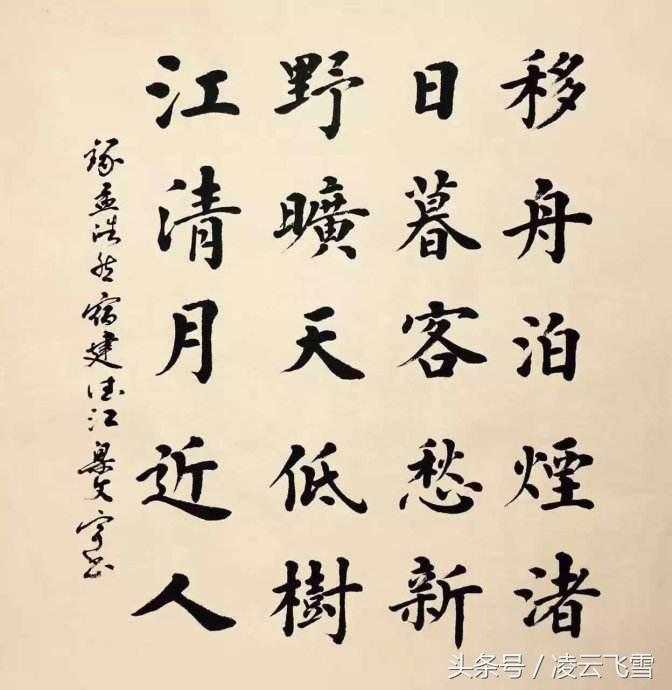 移舟泊煙渚
日暮客愁新
野曠天低樹
江清月近人
孟浩然宿建德江 文书
头条号 / 凌云飞雪